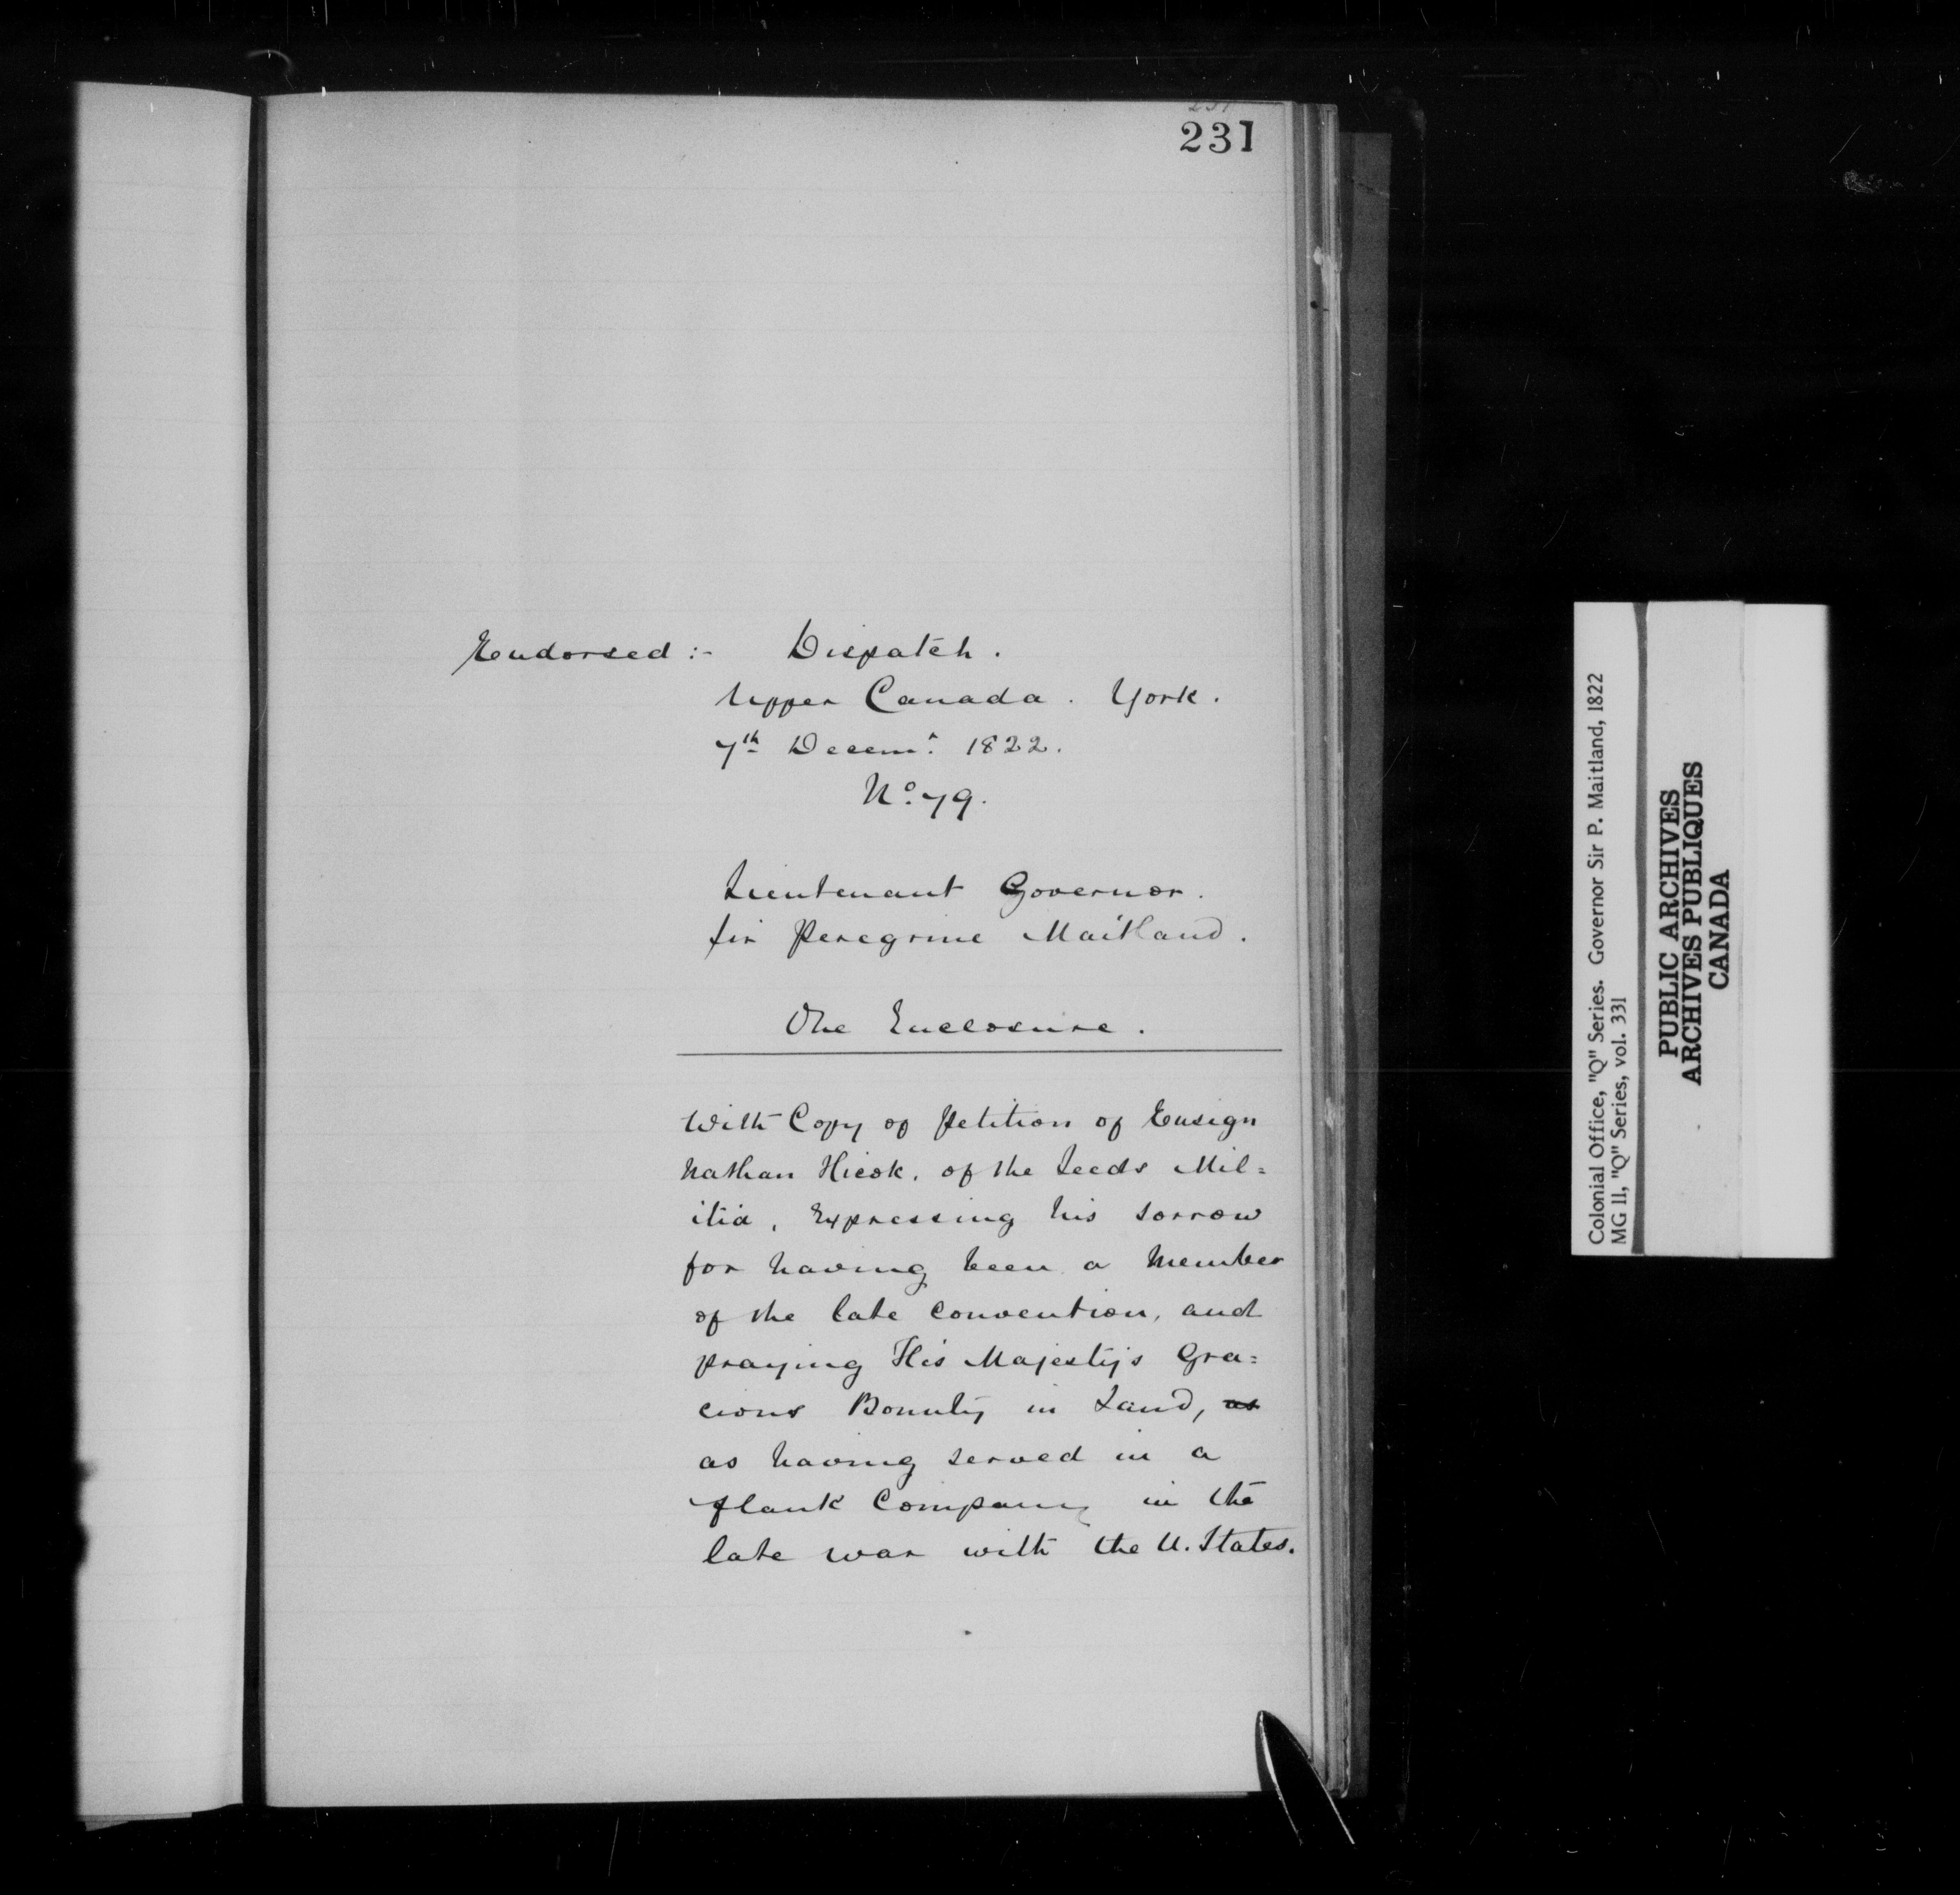 231
231
Endorsed :- Dispatch.
Upper Canada. York.
7th Decemr. 1822.
No. 79.
Lieutenant Governor.
Sir Peregrine Maitland.
One Enclosure.
With Copy of Petition of Ensign
Nathan Hicok. of the Leeds Mil=
itia, Expressing his sorrow
for having been a Member
of the late Convention, and
praying His Majesty's Gra=
cious Bounty in Land, as
as having served in a
flank Company in the
late war with the U. States.
Colonial Office, "Q" Series. Governor Sir P. Maitland, 1822
MG 11, "Q" Series, vol. 331
PUBLIC ARCHIVES
ARCHIVES PUBLIQUES
CANADA